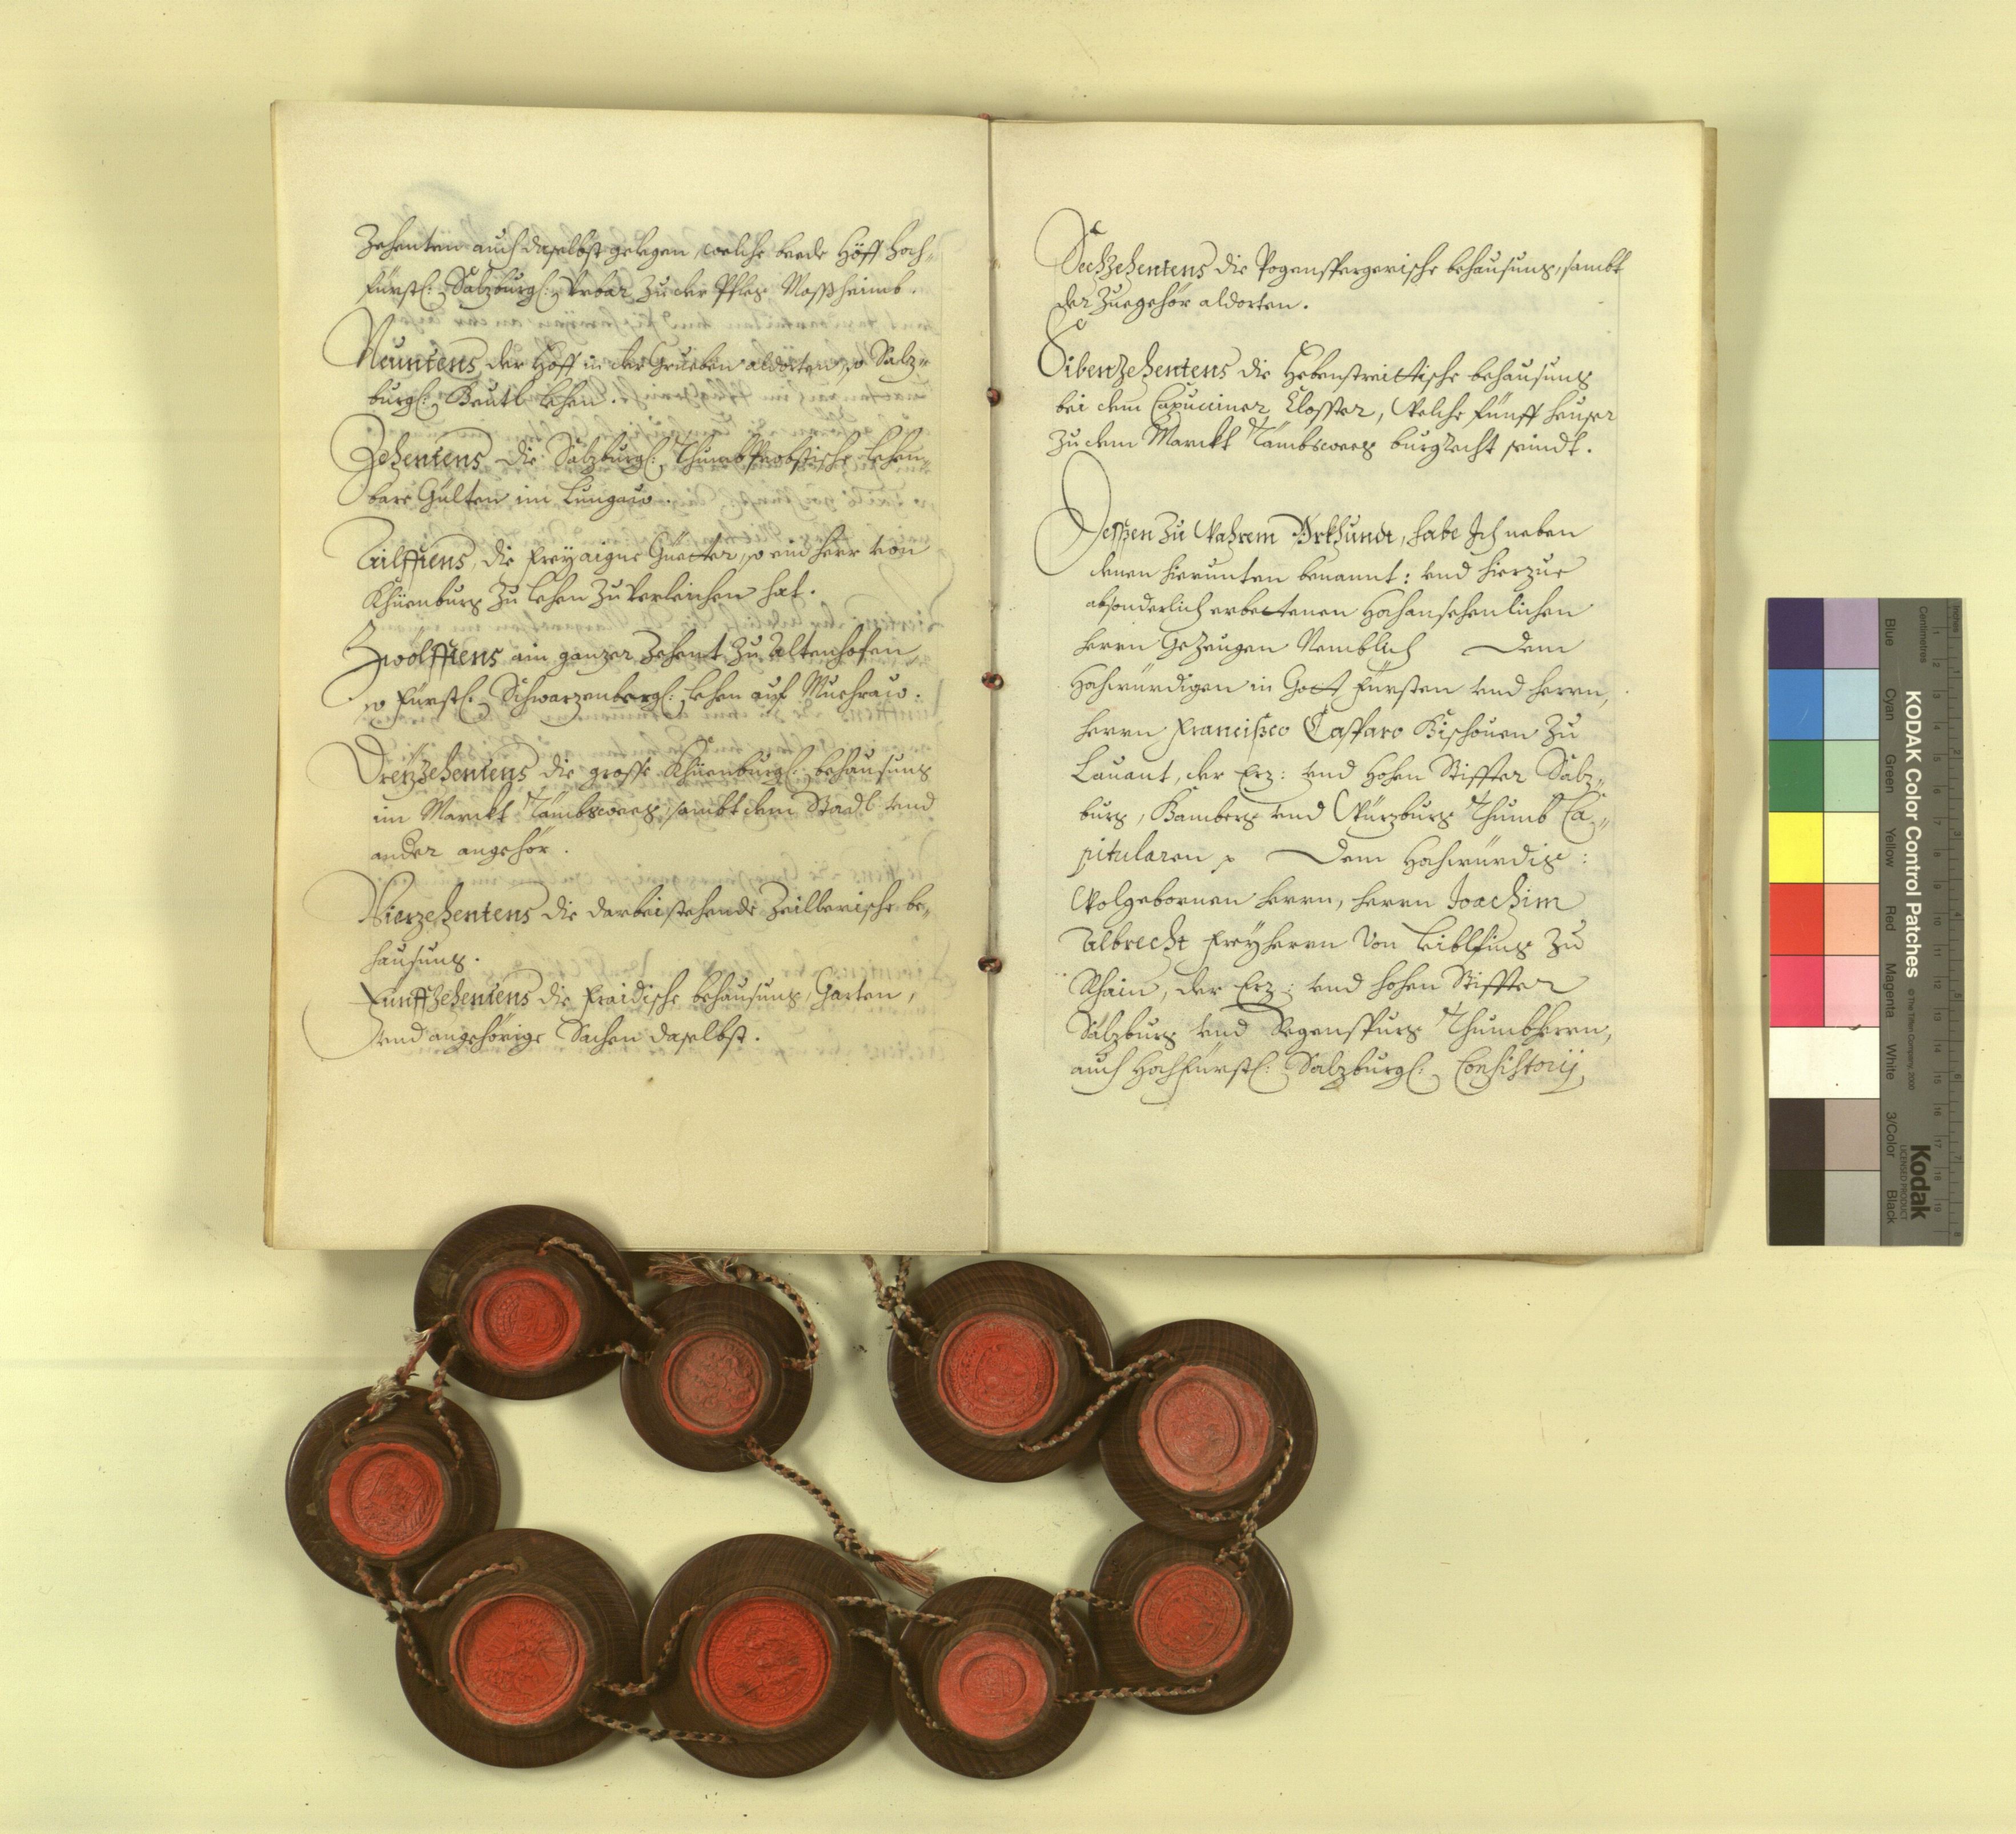 Zehenten auch daselbst gelegen, welche beede Höff hoch-
fürstl: Salzburgl: Vrbar zu der Pfleg Mossheimb.
Neuntens, der Hoff in der Grueben aldorten, so Salz-
burgl: Beutl Lehen.
Zehentens die Salzburgl: Thumb Probstische Lehen-
bare Gülten im Lungaw.
Ailfftens, die freyaigne Güetter, so ein Herr von
Khüenburg zu Lehen zuverleichen hat.
Zwölfftens ain ganzer Zehent zu Altenhofen
so Fürstl: Schwarzenbergl: Lehen auf Muehraw.
Dreyzehentens die grosse Khüenburgl: behausung
im Marckt Tambsweeg, sambt dem Stadl vnd
ander angehör.
Vierzehentens die darbeistehende Zeillerische be-
hausung.
Fünffzehentens die Fraidische behausung, Garten,
vnd angehörige Sachen daselbst.
Sechzehentens die Pogenspergerische behausung, sambt
der Zuegehör aldorten.
Sibenzehentens die Hebenstreittische behausung
bei dem Capuciner Closster, Welche fünff heuser
zu dem Marckt Tambsweeg burgrecht seindt.
Dessen zu Wahrem Vrkhundt, habe Ich neben
denen hierunten benannt: vnd hierzue
absonderlich erbettenen Hochansehenlichen
Herrn Gezeugen Nemblich Dem
Hochwürdigen in Gott Fürsten vnd Herrn,
Herrn Francisco Casparo Bischouen zu
Lauant, der Erz: vnd Hohen Stiffter Salz-
burg, Bamberg vnd Würzburg Thumb Ca-
pitularen Dem Hochwürdig:
Wolgebornen Herrn, Herrn Joachim
Albrecht Freyherrn von Leiblfing zu
Rhain, der Erz: vnd Hohen Stiffter
Salzburg vnd Regenspurg Thumbherrn,
auch Hochfürstl: Salzburgl: Consistorij
KODAK Color Control Patches
© The Tiffen Company, 2000
Kodak
LICENSED PRODUCT
Inches
Centimetres
Blue
Cyan
Green
Yellow
Red
Magenta
White
3/Color
Black